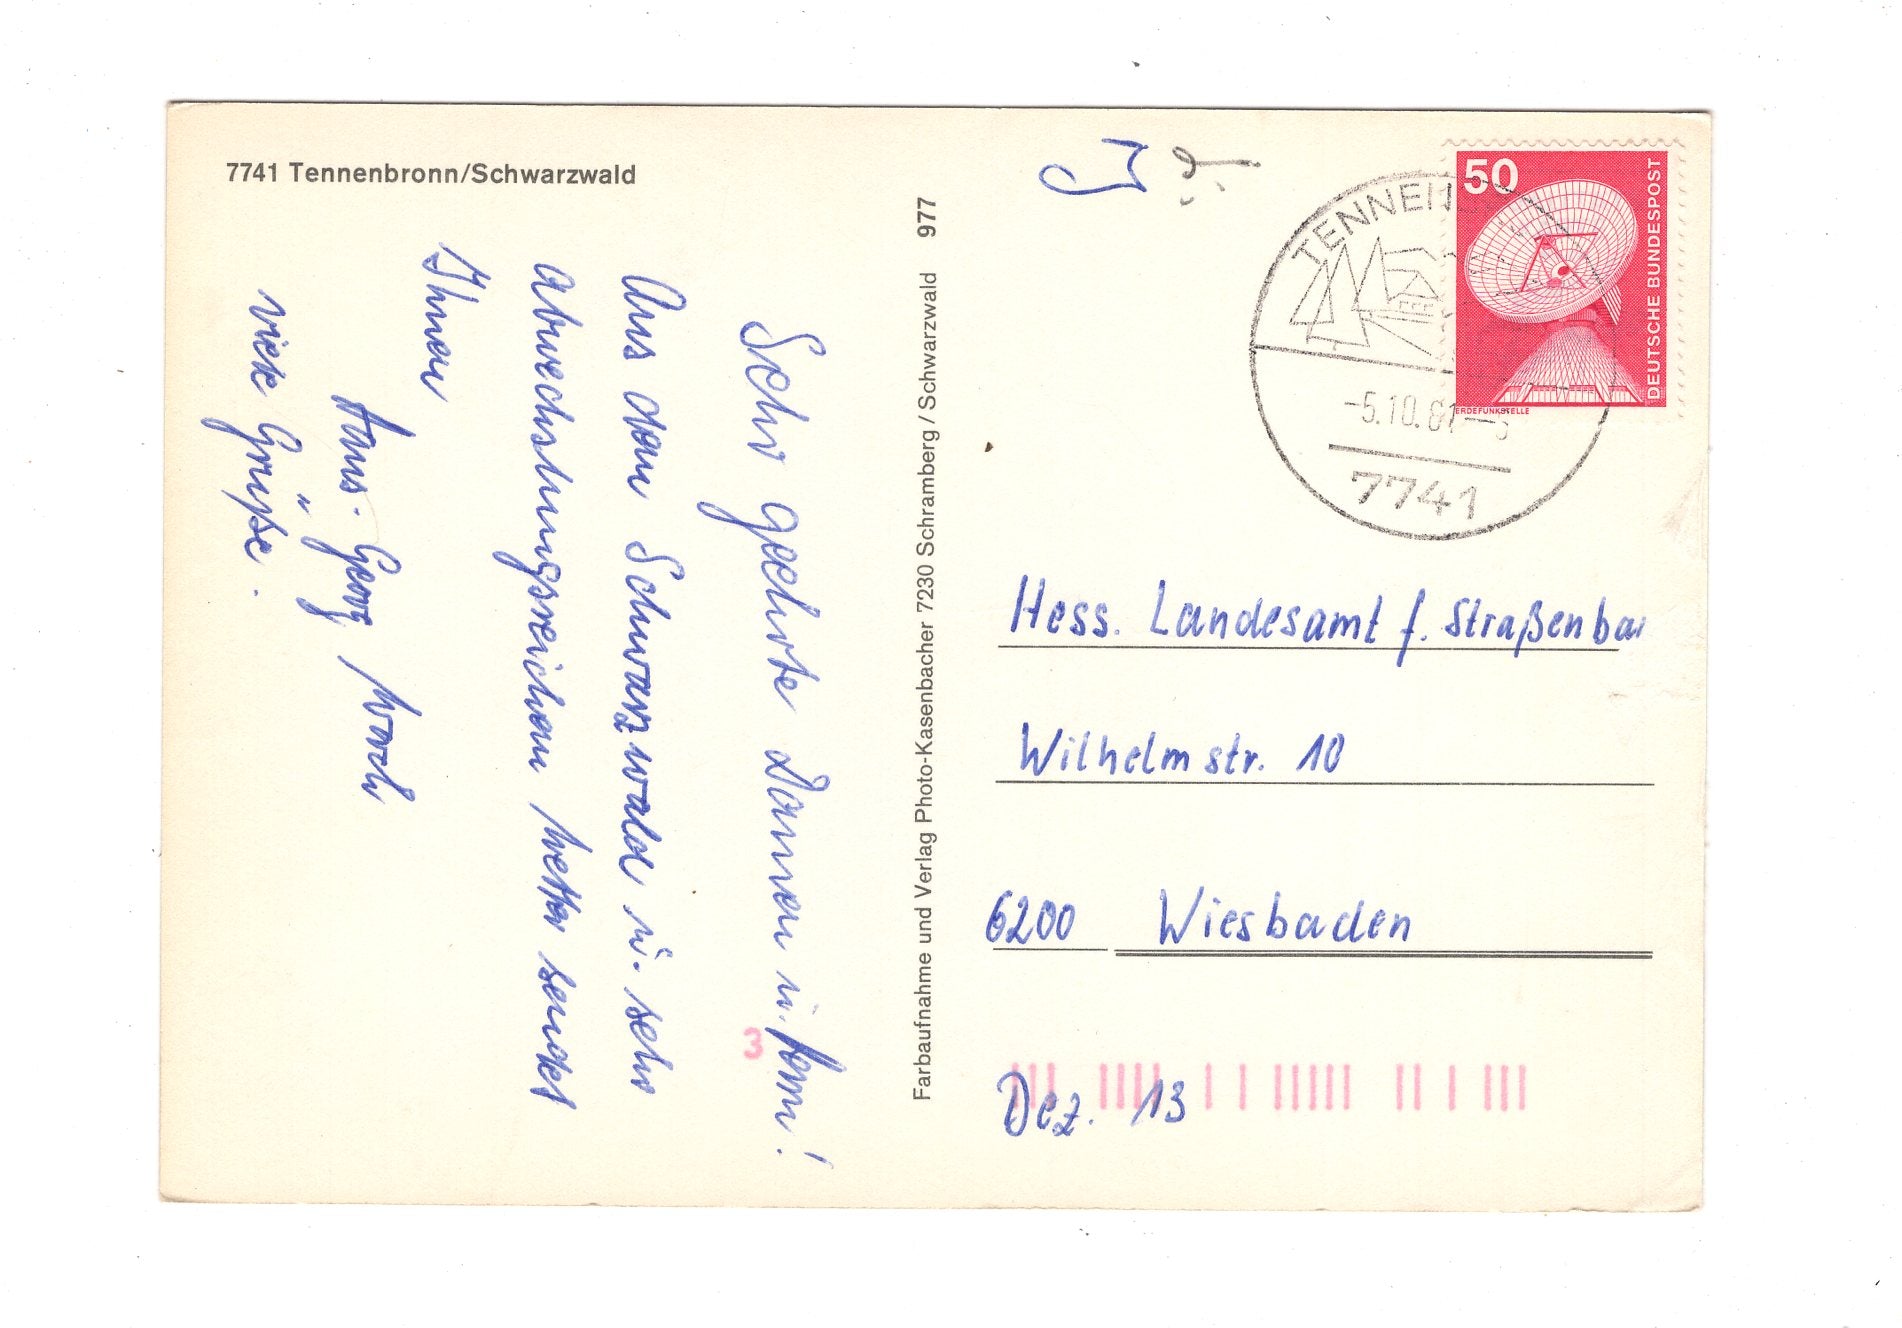 7741 Tennenbronn/Schwarzwald
Sehr geehrte Damen u. Herrn!
Aus dem Schwarzwald u. sehr
abwechslungsreichem Wetter sendet
Ihnen
Hans-Georg
viele Grüße.
Farbaufnahme und Verlag Photo-Kasenbacher 7230 Schramberg/Schwarzwald 977
50
DEUTSCHE BUNDESPOST
ERDEFUNKSTELLE
-5.10.81
7741
Hess. Landesamt f. Straßenbau
Wilhelmstr. 10
6200 Wiesbaden
Dez. 13
3